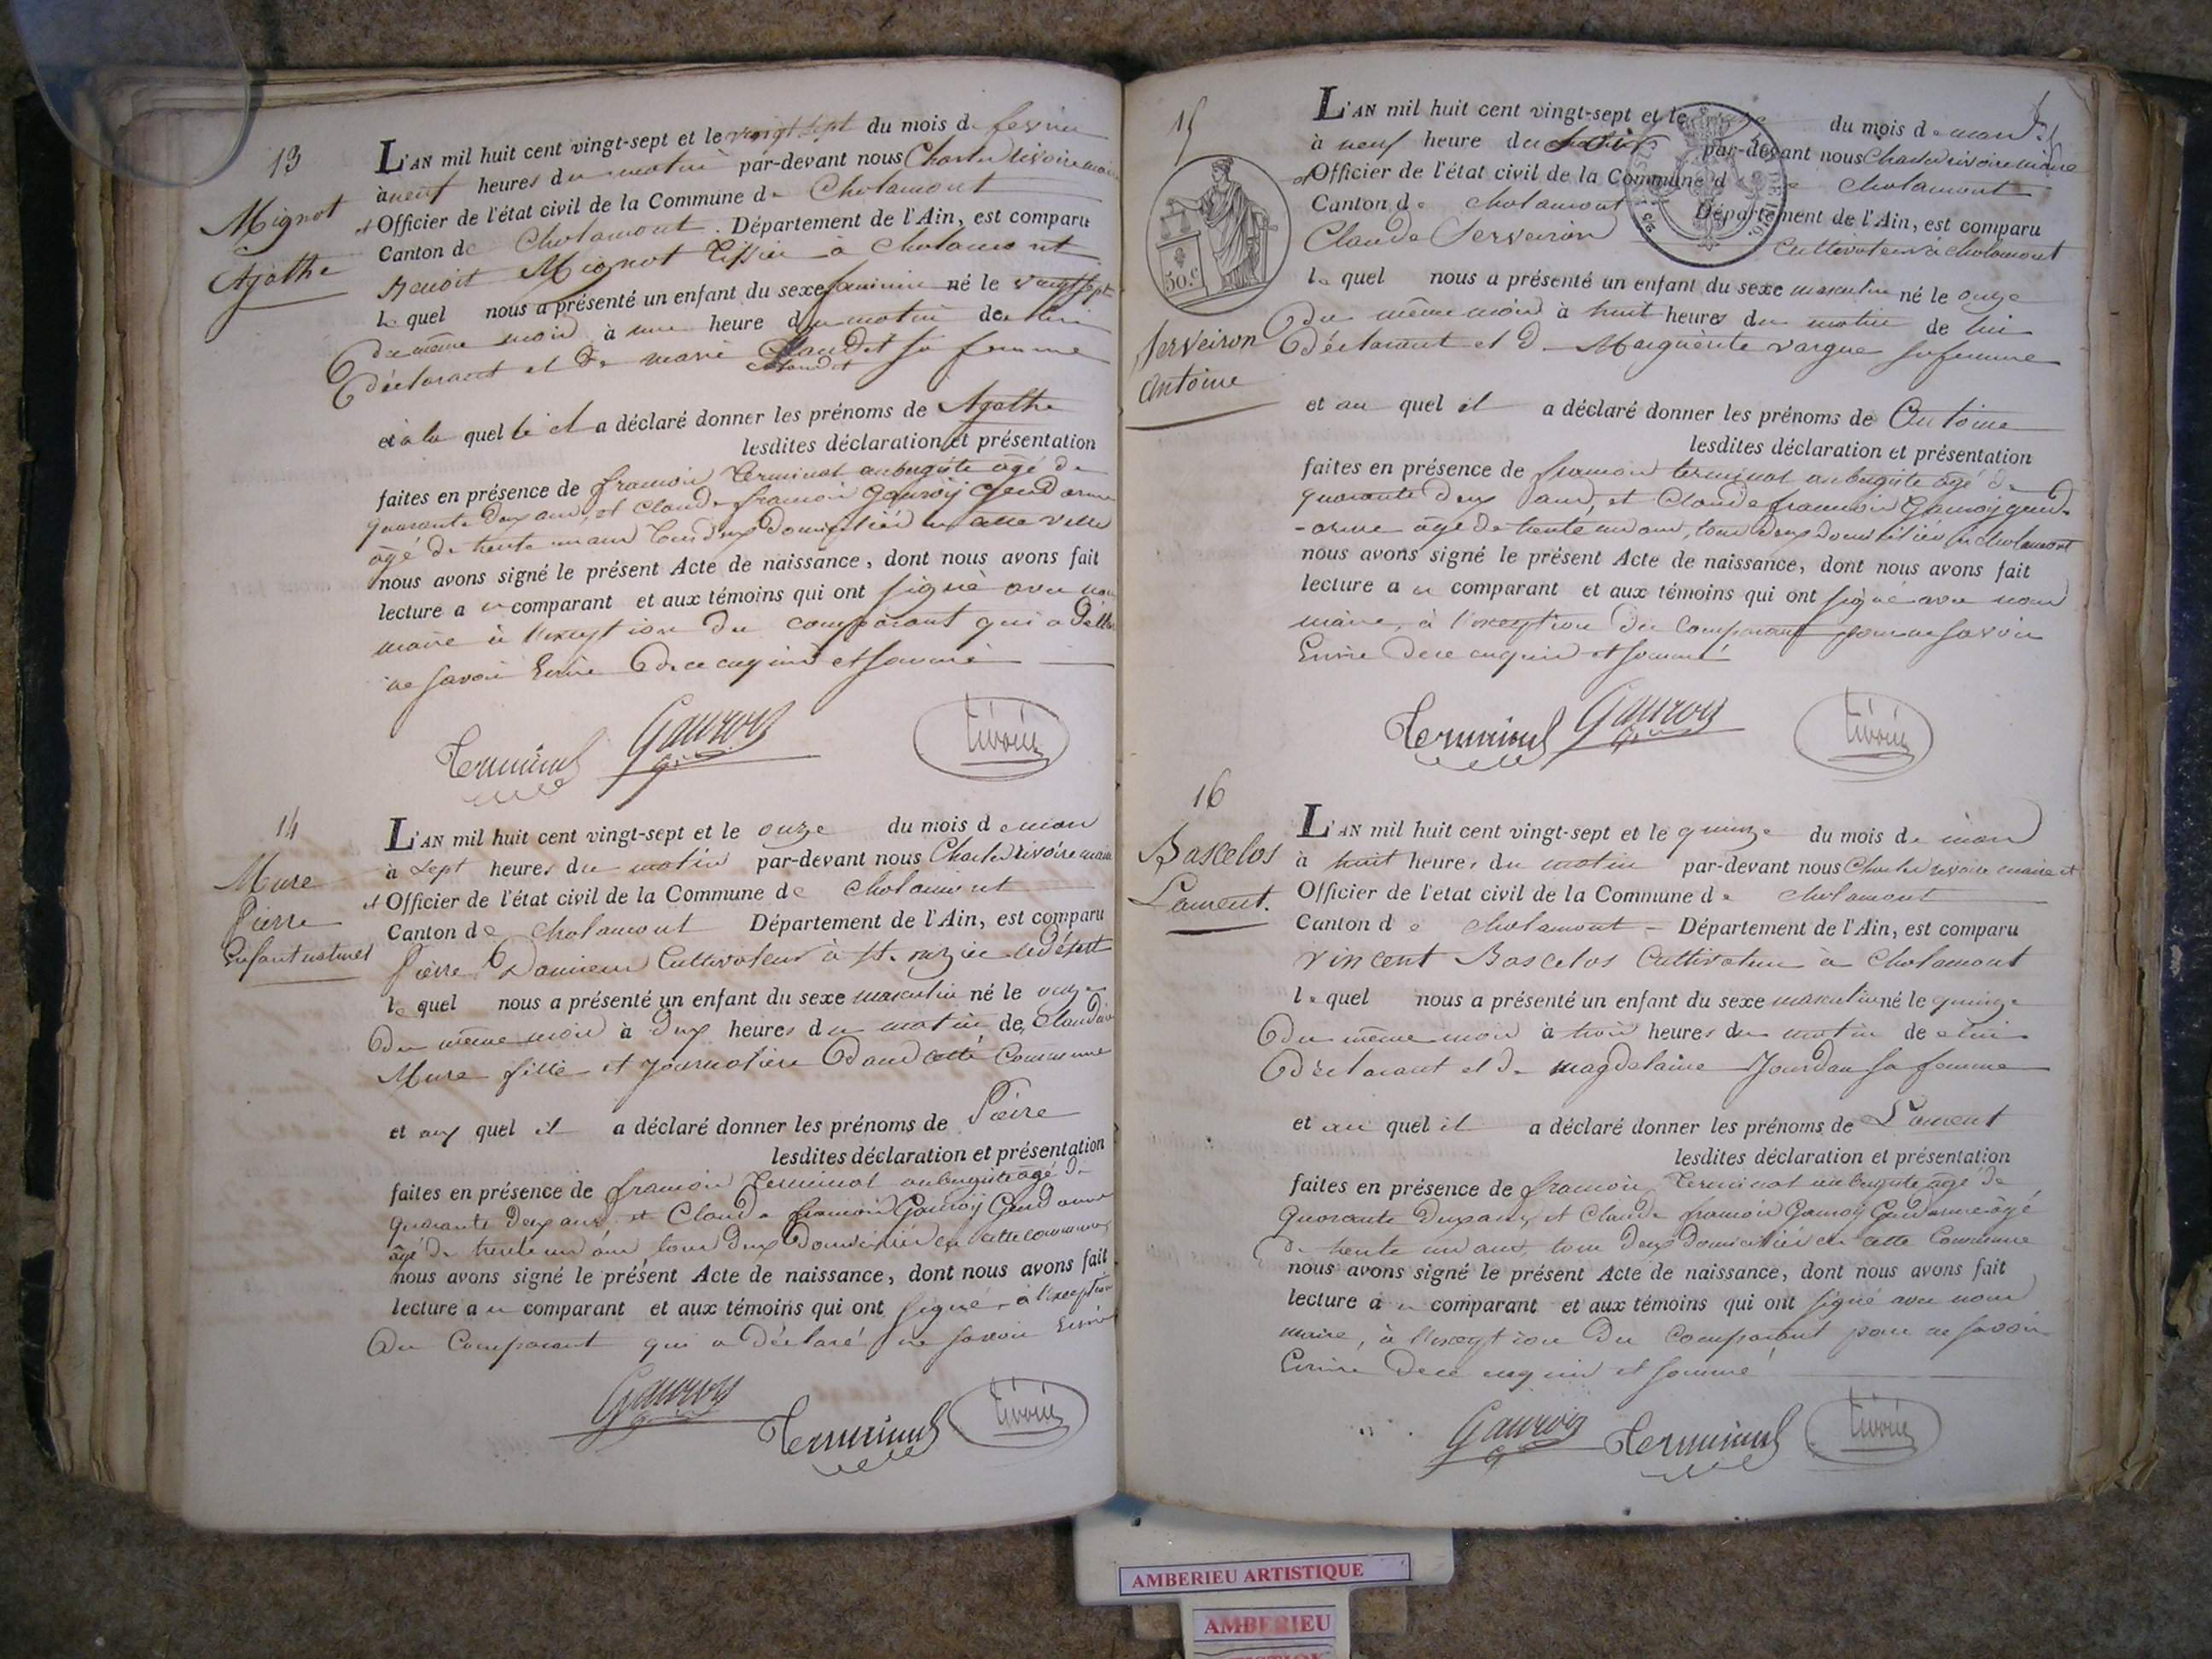 13
Mignot
Agathe
L'AN mil huit cent vingt-sept et le vingt sept du mois de fevrier
à neuf heures du matin par-devant nous Charles rivoire maire
et Officier de l'état civil de la Commune de Chalamont
Canton de Chalamont. Département de l'Ain, est comparu
Benoit Mignot tissier à Chalamont
lequel nous a présenté un enfant du sexe feminin né le vingt sept
du même mois à une heure du matin de lui
déclarant et de marie sa femme
et à la quelle il a déclaré donner les prénoms de Agathe
lesdites déclaration et présentation
faites en présence de francois Terminal aubergiste âgé de
quarante deux ans, et Claude francois Gauroy gendarme
âgé de trente un ans tous deux domiciliés en cette ville
nous avons signé le présent Acte de naissance, dont nous avons fait
lecture au comparant et aux témoins qui ont signé avec nous
maire à l'exception du comparant qui a
ne savoir Ecrire de ce enquis et sommé
Terminal Gauroy rivoire
14
Mure
Pierre
Enfant naturel
L'AN mil huit cent vingt-sept et le onze du mois de mars
à sept heures du matin par-devant nous Charles rivoire maire
et Officier de l'état civil de la Commune de Chalamont
Canton de Chalamont Département de l'Ain, est comparu
Pierre Cultivateur à St. nizier le Désert
lequel nous a présenté un enfant du sexe masculin né le onze
du même mois à deux heures du matin de Claudine
Mure fille et journalière dans cette Commune
et auquel il a déclaré donner les prénoms de Pierre
lesdites déclaration et présentation
faites en présence de francois Terminal aubergiste âgé de
quarante deux ans et Claude francois Gauroy Gendarme
âgé de trente un ans tous deux domiciliés en cette commune
nous avons signé le présent Acte de naissance, dont nous avons fait
lecture au comparant et aux témoins qui ont signé, à l'exception
du Comparant qui a déclaré ne savoir Ecrire
Gauroy Terminal rivoire
15
Serveiron
Antoine
50.c
L'AN mil huit cent vingt-sept et le du mois de mars
à neuf heure du matin par-devant nous Charles rivoire maire
et Officier de l'état civil de la Commune de Chalamont
Canton de Chalamont Département de l'Ain, est comparu
Claude Serveiron Cultivateur à Chalamont
lequel nous a présenté un enfant du sexe masculin né le onze
du même mois à huit heures du matin de lui
déclarant et de Marguerite vargue sa femme
et au quel il a déclaré donner les prénoms de Antoine
lesdites déclaration et présentation
faites en présence de francois terminal aubergiste âgé de
quarante deux ans, et Claude francois Gauroy gend-
-arme âgé de trente un ans, tous deux domiciliés à chalamont
nous avons signé le présent Acte de naissance, dont nous avons fait
lecture au comparant et aux témoins qui ont signé avec nous
maire, à l'exception du Comparant pour ne savoir
Ecrire de ce enquis et sommé
Terminal Gauroy rivoire
16
Bascelos
Laurent.
L'AN mil huit cent vingt-sept et le quinze du mois de mars
à huit heures du matin par-devant nous Charles rivoire maire et
Officier de l'etat civil de la Commune de Chalamont
Canton de Chalamont - Département de l'Ain, est comparu
vincent Bascelos Cultivateur à Chalamont
lequel nous a présenté un enfant du sexe masculin né le quinze
du même mois à trois heures du matin de lui
déclarant et de magdelaine Jourdan sa femme
et au quel il a déclaré donner les prénoms de Laurent
lesdites déclaration et présentation
faites en présence de francois Terminal aubergiste âgé de
quarante deux ans, et Claude francois Gauroy Gendarme âgé
de trente un ans, tous deux domiciliés en cette Commune
nous avons signé le présent Acte de naissance, dont nous avons fait
lecture au comparant et aux témoins qui ont signé avec nous
maire, à l'exception du Comparant pour ne savoir
Ecrire de ce enquis et sommé
Gauroy Terminal rivoire
AMBERIEU ARTISTIQUE
AMBERIEU